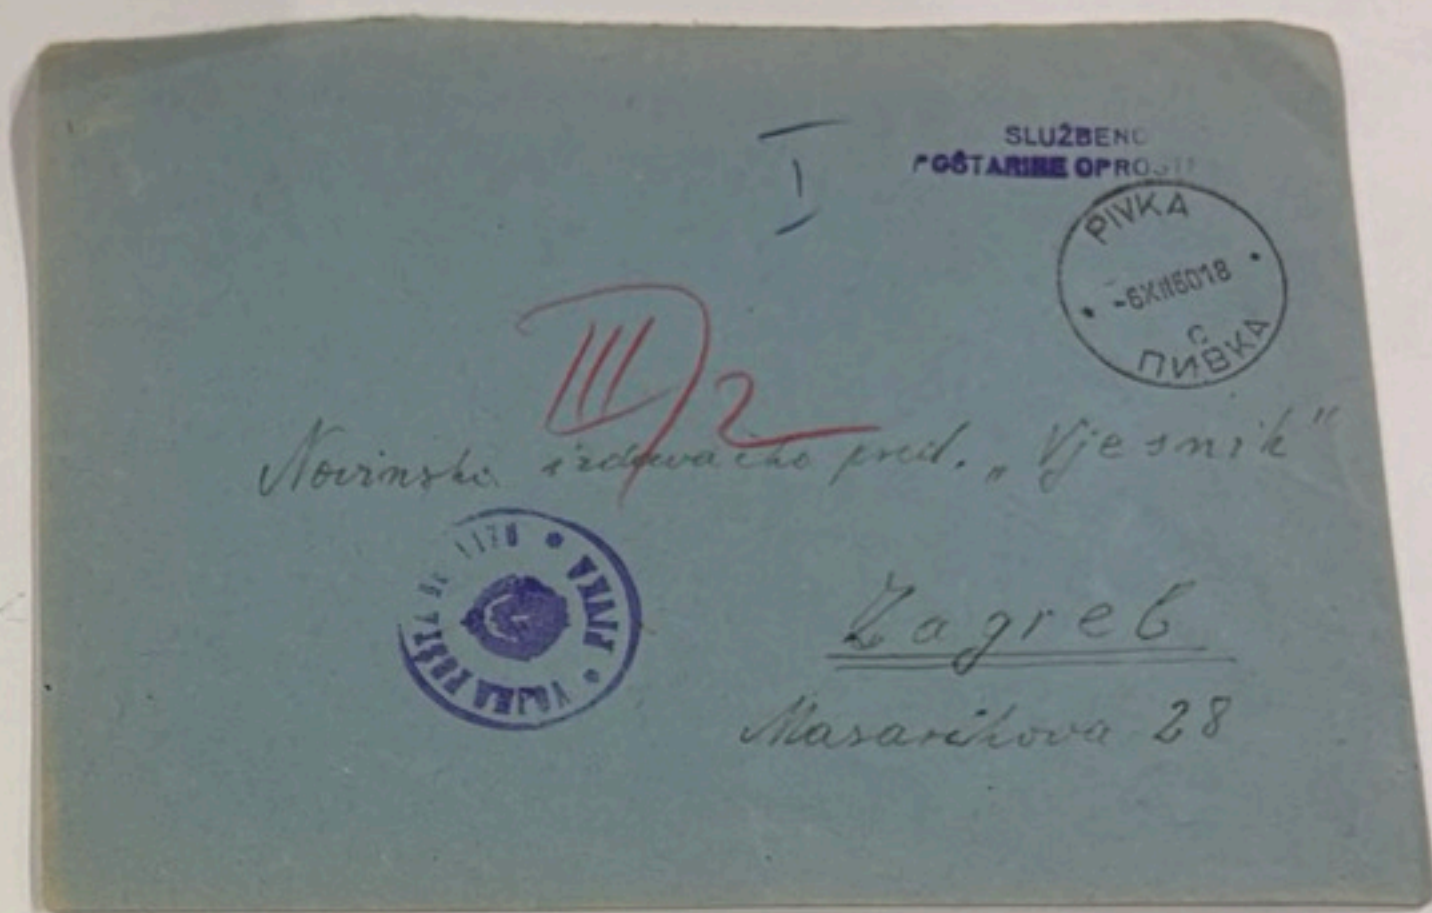 I
SLUŽBENO
POŠTARINE OPROSTI
PIVKA
-6XII6018
C
ПИВКА
III/2
Novinsko izdavačko pred. „Vjesnik"
VOJNA POŠTA
PIVKA
Zagreb
Masarikova 28